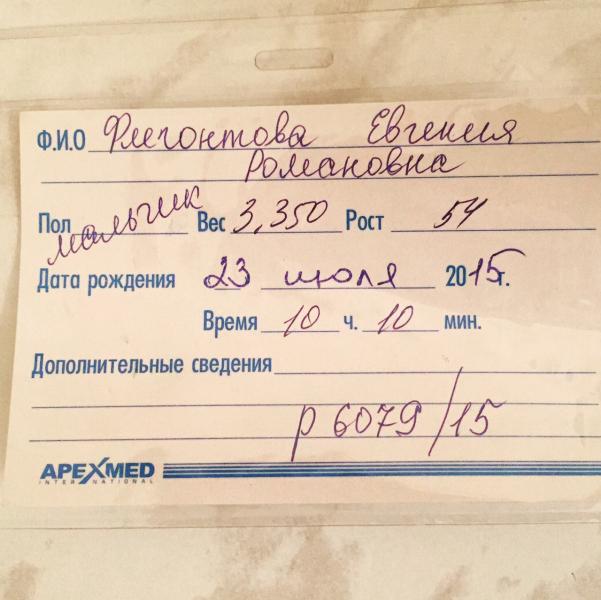 Ф.И.О Флегонтова Евгения
Романовна
Пол мальчик Вес 3,350 Рост 54
Дата рождения 23 июля 2015г.
Время 10 ч. 10 мин.
Дополнительные сведения
р 6079/15
APEXMED
INTERNATIONAL